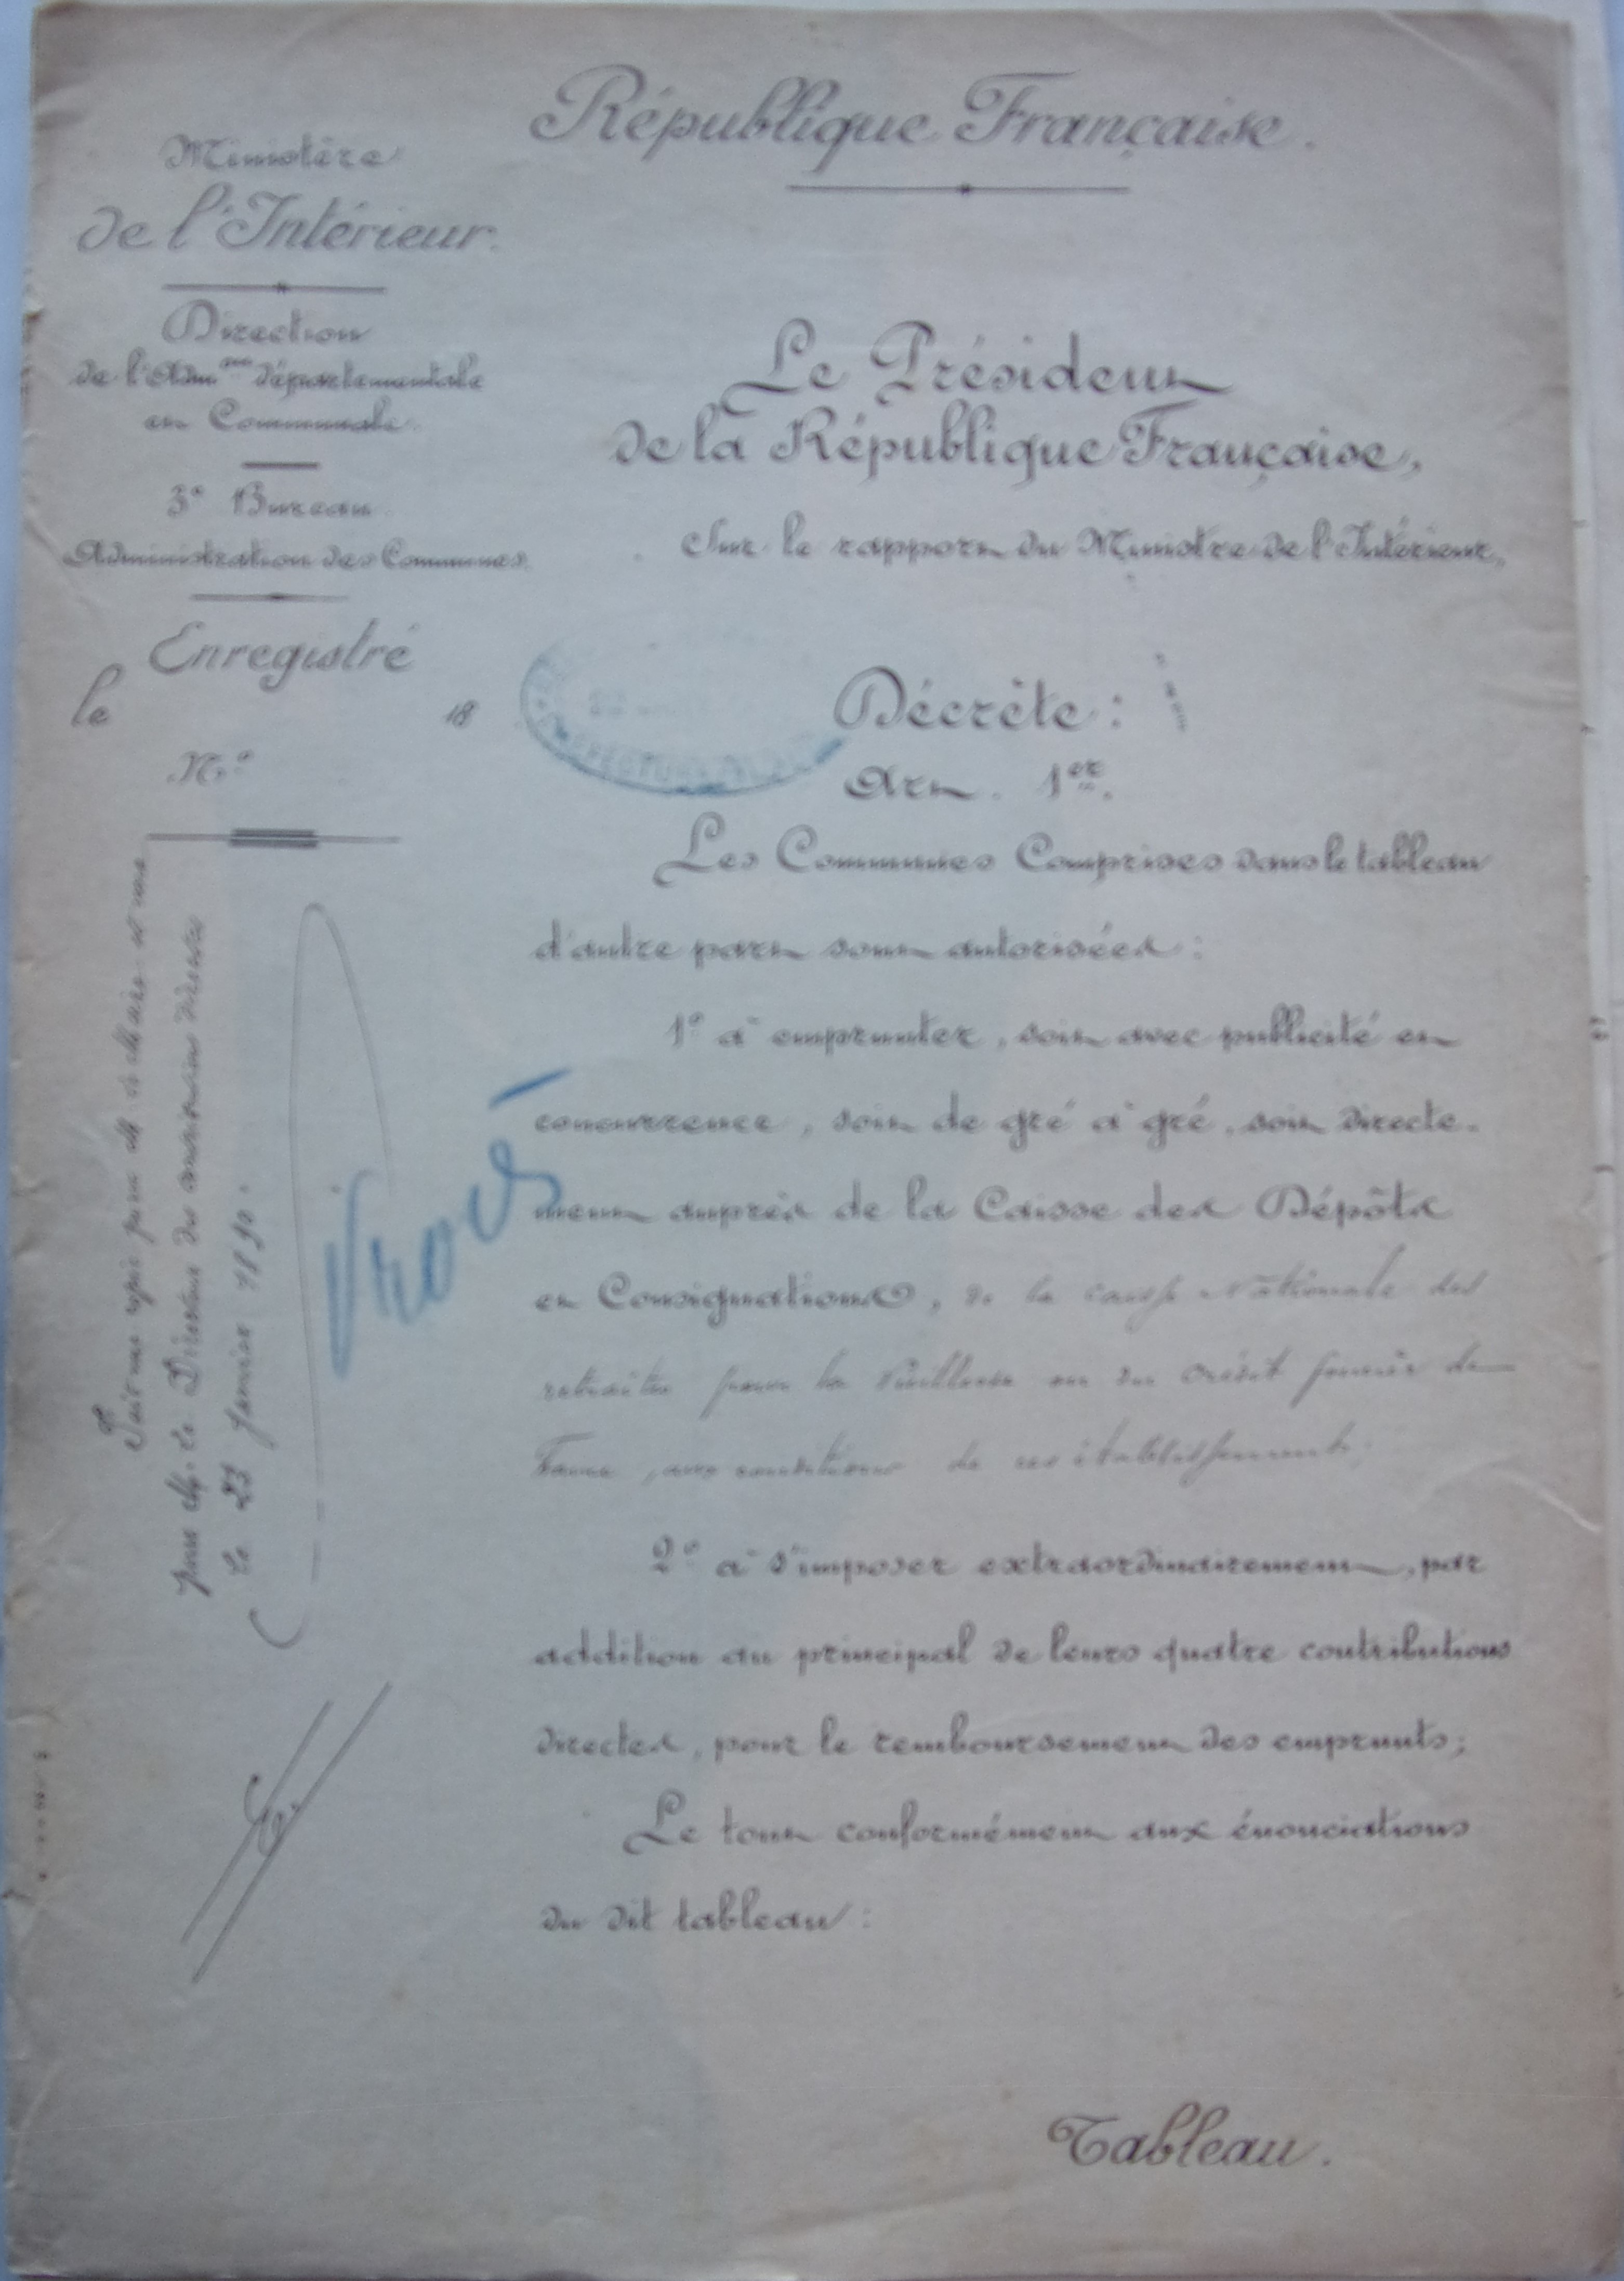 République Française.
Ministère
de l'Intérieur.
Direction
de l'Adm.on départementale
et Communale.
3e Bureau
Administration des Communes.
Enregistré
le 18
N.o
Le Président
de la République Française,
Sur le rapport du Ministre de l'Intérieur,
Décrète :
Art. 1er.
Les Communes Comprises dans le tableau
d'autre part sont autorisées :
1o à emprunter, soit avec publicité et
concurrence, soit de gré à gré, soit directe-
ment auprès de la Caisse des Dépôts
et Consignations, de la caisse Nationale des
retraites pour la Vieillesse ou du crédit foncier de
France, aux conditions de ces établissements;
2o à s'imposer extraordinairement, par
addition au principal de leurs quatre contributions
directes, pour le remboursement des emprunts;
Le tout conformément aux énonciations
du dit tableau :
Tableau.
Fait une copie pour M. le Maire et une
pour M. le Directeur des contributions directes
le 23 Janvier